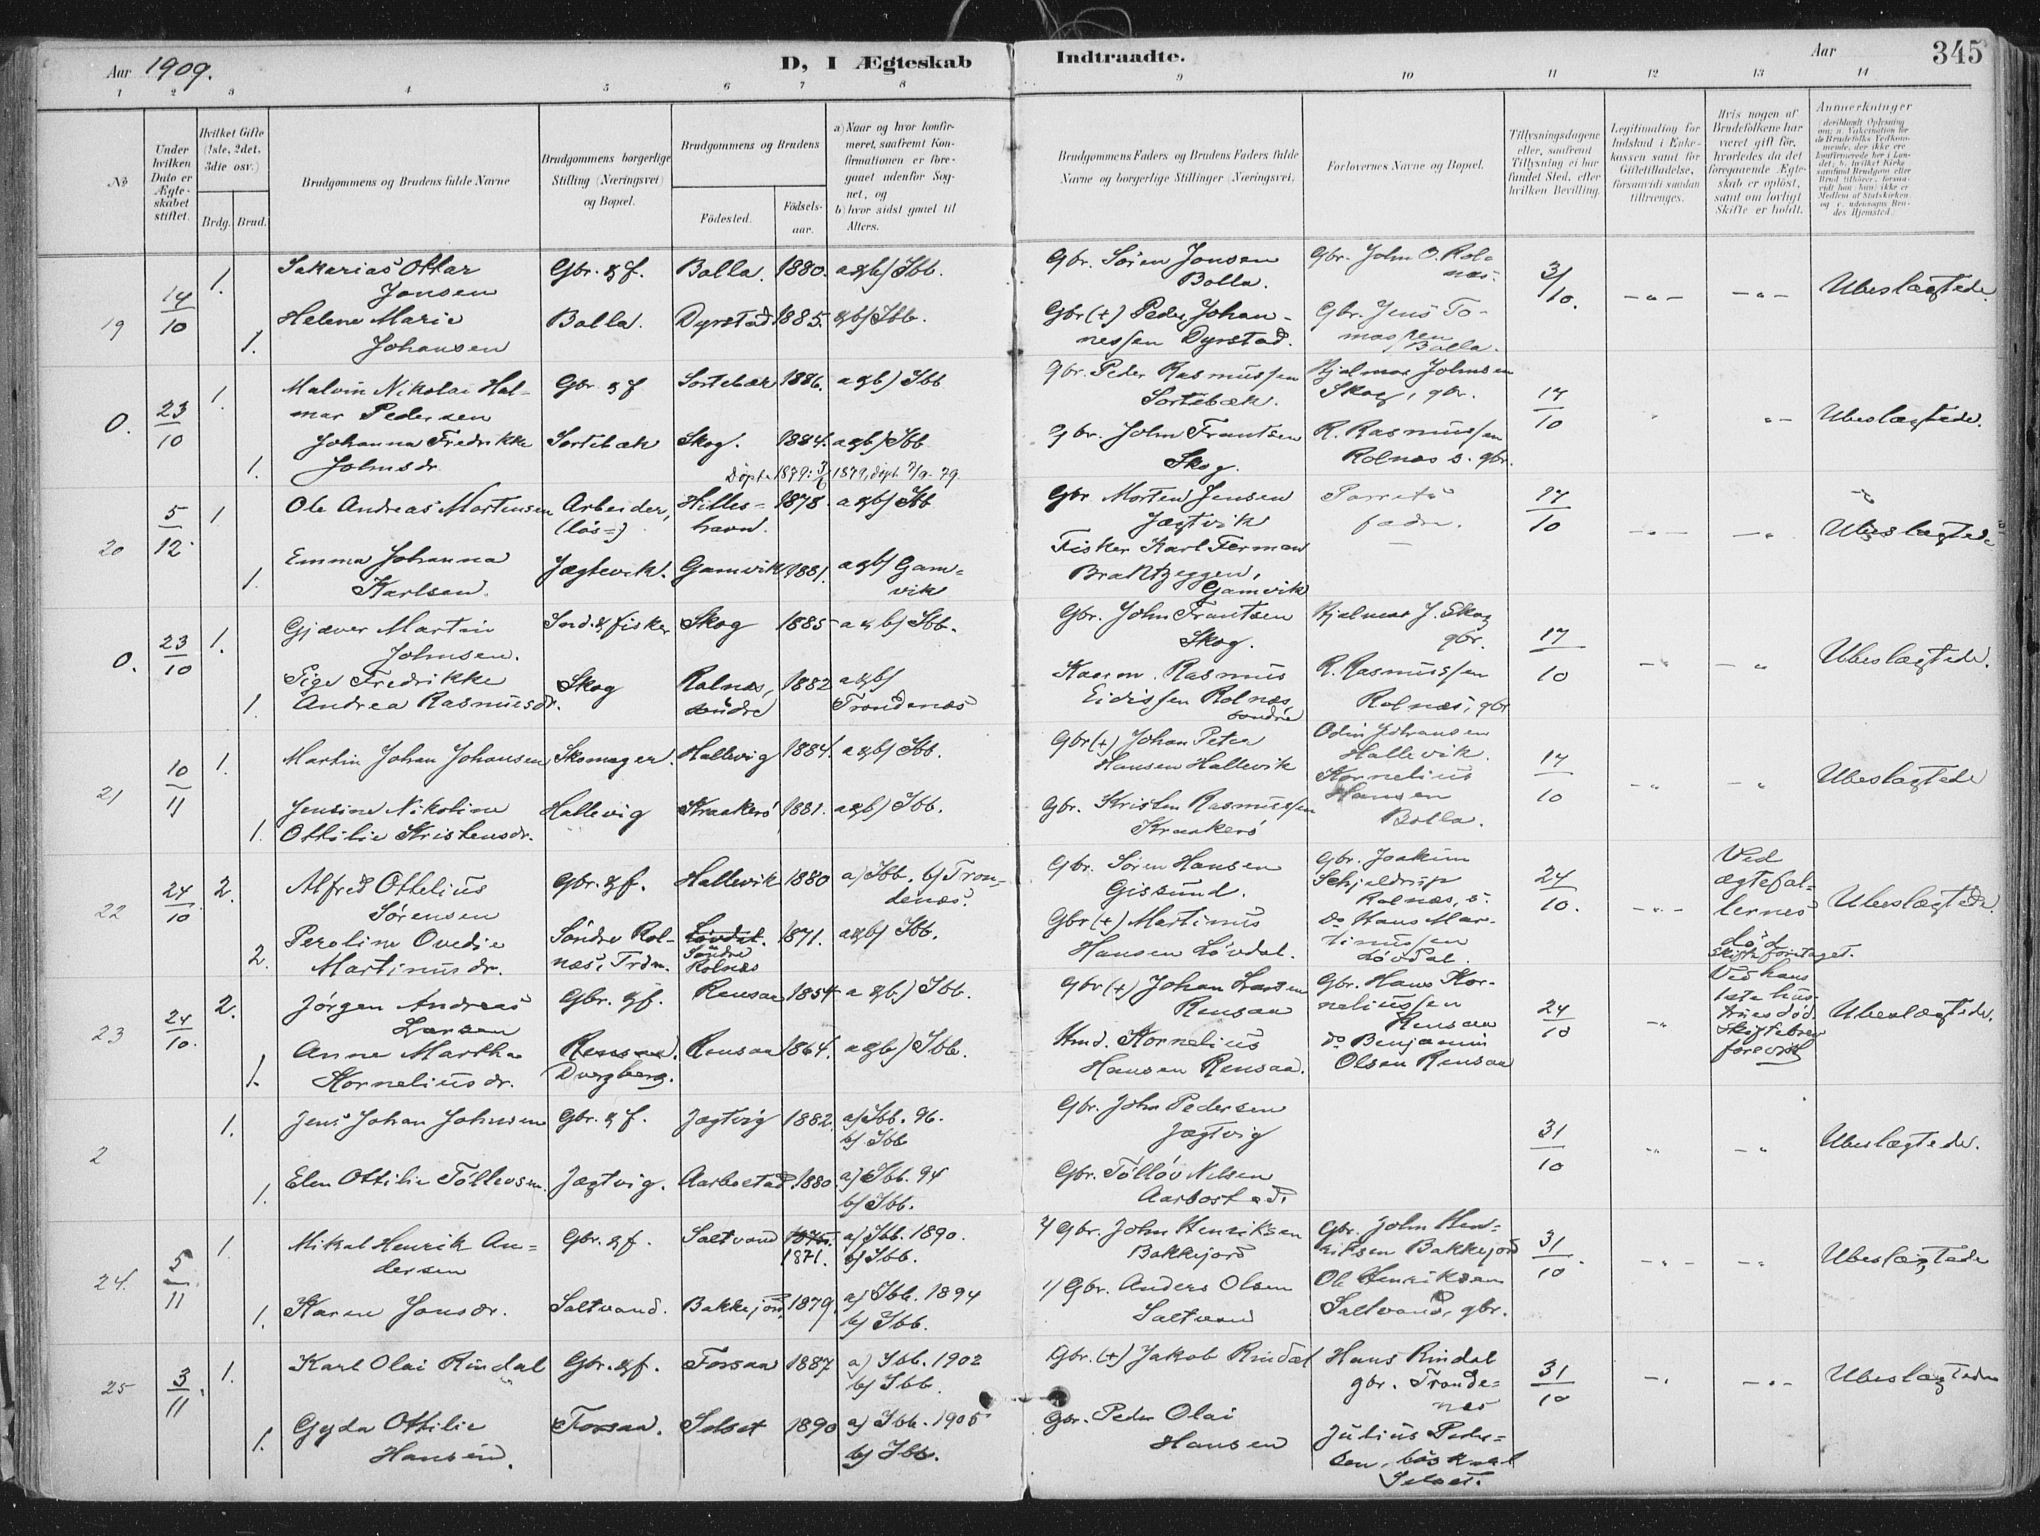 Aar 1909.
D, I Ægteskab Indtraadte.
Aar
345
1 2 3 4 5 6 7 8 9 10 11 12 13 14
No
Under hvilken Dato er Ægteskabet stiftet.
Hvilket Gifte (1ste, 2det, 3die osv.)
Brdg. Brud.
Brudgommens og Brudens fulde Navne
Brudgommens borgerlige Stilling (Næringsvei) og Bopæl.
Brudgommens og Brudens
Fødested.
Fødsels-aar.
a) Naar og hvor konfirmeret, saafremt Konfirmationen er foregaaet udenfor Sognet, og
b) hvor sidst gaaet til Alters.
Brudgommens Faders og Brudens Faders fulde Navne og borgerlige Stillinger (Næringsvei)
Forlovernes Navne og Bopæl.
Tillysningsdagene eller, saafremt Tillysning ei har fundet Sted, efter hvilken Bevilling.
Legitimation for Indskud i Enkekassen samt for Giftetilladelse, forsaavidt saadan tiltrænges.
Hvis nogen af Brudefolkene har været gift før, hvorledes da det foregaaende Ægteskab er opløst, samt om lovligt Skifte er holdt.
Anmerkninger
19 14/10 1. Sakarias Ottar Jonsen Gbr. & f. Bolla. 1880. a&b) Ibb. Gbr. Søren Jonsen Bolla. Gbr. John O. Rolnæs. 3/10. Ubeslægtede.
1. Helene Marie Johansen Bolla. Dyrstad 1885. a&b) Ibb. Gbr (+) Peder Johannessen Dyrstad. Gbr. Jens Tomassen Bolla.
0. 23/10 1. Malvin Nikolai Halmar Pedersen Gbr. & f Sortebæk 1886. a&b) Ibb Gbr. Peder Rasmussen Sortebæk. Hjelmar Johnsen Skog, gbr. 17/10 Ubeslægtede.
1. Johanna Fredrikke Johnsdr. Sortebæk Skog. 1884. a&b) Ibb Gbr. John Frantsen Skog. R. Rasmussen Rolnæs s. gbr.
20 5/12. 1 Ole Andreas Mortensen Arbeider, (løs=) Hilleshavn. 1878. a&b) Ibb Gbr Morten Jensen Jægtvik Parrets fædre. 17/10 Ubeslægtede
1. Emma Johanna Karlsen. Jægtevik. Gamvik 1881. a&b) Gamvik Fisker Karl Ferman Gamvik
0. 23/10 1. Gjæver Martin Johnsen. Ind. & fisker Skog 1885 a & b) Ibb. Gbr. John Frantsen Skog. Hjelmar J. Skog gbr. 17/10 Ubeslægtede.
1. Pige Fredrikke Andrea Rasmusdr. Skog Rolnæs, søndre 1882 a&b) Trondenæs Rasmus Eidissen Rolnæs, søndre R. Rasmussen Rolnæs, gbr
21 10/11 1. Martin Johan Johansen Skomager. Hallevig 1884. a&b) Ibb. Gbr (+) Johan Peter Hansen Hallevik Odin Johansen Hallevik. 17/10 Ubeslægtede
1. Jensine Nikoline Ottilie Kristensdr. Hallevig Kraakerø 1881. a&b) Ibb. Gbr. Kristen Rasmussen Kraakerø Kornelius Hansen Bolla.
22 24/10. 2. Alfred Ottelius Sørensen Gbr. & f. Hallevik 1880 a) Ibb. b) Trondenæs. Gbr. Søren Hansen Gissund. Gbr. Joakim Schjeldrup Rolnæs, s. 24/10. Ved ægtefællernes død Skifte foretaget. Ubeslægtede.
2. Peroline Ovedie Martinusdr. Søndre Rolnæs, Trdn. Løvdal. Søndre Rolnæs 1871. a&b) Ibb. Gbr (+) Martinus Hansen Løvdal. Do Hans Martinussen Løvdal.
23 24/10. 2. Jørgen Andreas Larsen Gbr. & f. Rensaa 1854 a & b.) Ibb. Gbr (+) Johan Larsen Rensaa Gbr. Hans Korneliussen Rensaa 24/10 Ved hans 1ste hustrues død. Skiftebrev forevist Ubeslægtede.
1. Anne Martha Kornelius dr. Rensaa. Dvergberg. Rensaa 1864. a&b) Ibb. Kornelius Hansen Rensaa. do Benjamin Olsen Rensaa
2 1. Jens Johan Johnsen Gbr. & f. Jægtvig 1882. a) Ibb. 96. b) Ibb Gbr. John Pedersen Jægtvig 31/10 Ubeslægtede.
1. Elen Ottilie Tøllevsen. Jægtvig. Aarbostad. 1880. a) Ibb. 94 b) Ibb. Gbr. Tølløv Nilsen Aarbostad.
24. 5/11 1. Mikal Henrik Andersen Gbr. & f. Saltvand 1875. 1871. a) Ibb. 1890. b) Ibb. Gbr. John Henriksen Bakkejord Gbr. John Henriksen Bakkejord 31/10. Ubeslægtede
1. Karen Jonsdr. Saltvand. Bakkejord 1879. a) Ibb. 1894 b) Ibb. 1) Gbr. Anders Olsen Saltvand Ole Henriksen Saltvand, gbr.
25 3/11. 1. Karl Olai Rindal Gbr. & f. Forsaa 1887 a) Ibb. 1902 b) Ibb. Gbr. (+) Jakob Rindal Hans Rindal gbr. Trondenæs 31/10 Ubeslægtede
1. Gyda Ottilie Hansen. Forsaa. Selset 1890 a) Ibb. 1905 b) Ibb. Gbr. Peder Olai Hansen Julius Pedersen, Selset.